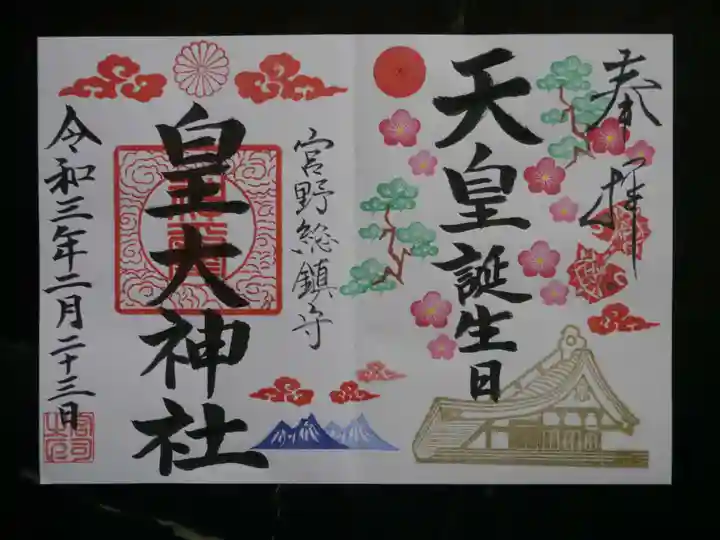 奉拝
天皇誕生日
宮野総鎮守
皇大神社
令和三年二月二十三日